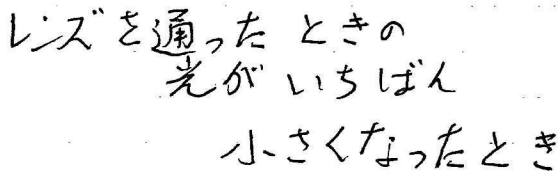 レンズを通ったときの
光がいちばん
小さくなったとき